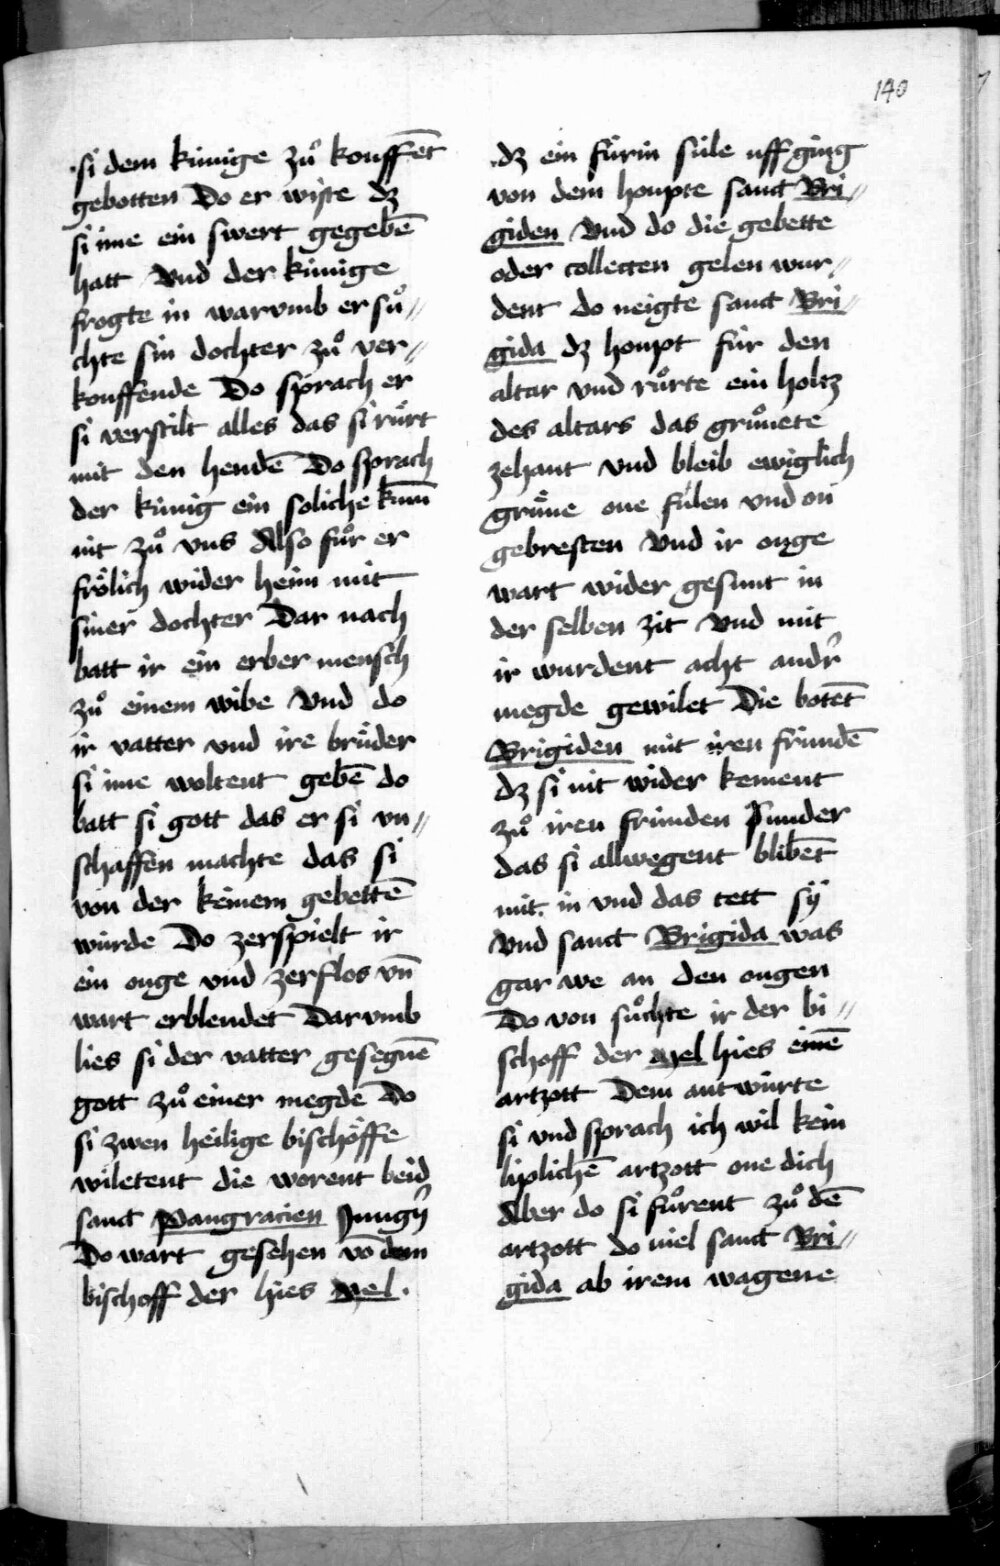 140
si dem künige zuͦ kouffēt
gebotten Do er wiste dz
si ime ein swert gegebē
hatt Vnd der künige
frogte in warvmb er suͦ⸗
chte sin dochter zuͦ ver⸗
kouffende Do sprach er
si verstilt alles das si ruͤrt
mit den hendē Do sprach
der künig ein soliche kum̄
nit zuͦ vns Also fuͦr er
froͤlich wider heim mit
siner dochter Dar nach
batt ir ein erber mensch
zuͦ einem wibe Vnd do
ir vatter vnd ire bruͤder
si ime woltent gebē do
batt si gott das er si vn⸗
schaffen machte das si
von der keinem gebettē
würde Do zerspielt ir
ein ouge vnd zerflos vn̄
wart erblendet Darvmb
lies si der vatter gesegnē
gott zuͦ einer megde Do
si zwen heilige bischoͤffe
wiletent die worent beid
sanct Pangracien Jungʼ
Do wart gesehen vō dem
bischoff der hies Mel.
dz ein fúrin súle uff ging
von dem houpte sanct Bri⸗
giden Vnd do die gebette
oder collecten gelen wur⸗
dent do neigte sanct Bri⸗
gida dz houpt für den
altar vnd ruͦrte ein holtz
des altars das gruͦnete
zehant vnd bleib ewiglich
gruͤne one fúlen vnd on
gebresten Vnd ir ouge
wart wider gesunt in
der selben zit Vnd mit
ir wurdent acht andʼr
megde gewilet Die botēt
Brigiden mit iren fründē
dz si nit wider kement
zuͦ iren fründen Sunder
das si allwegent blibēt
mit in vnd das tett sÿ
Vnd sanct Brigida was
gar we an den ougen
Do von suͦchte ir der bi⸗
schoff der Mel hies einē
artzott Dem antwürte
si vnd sprach ich wil kein
liplichē artzott one dich
Aber do si fuͦrent zuͦ dē
artzott do viel sanct Bri⸗
gida ab irem wagene